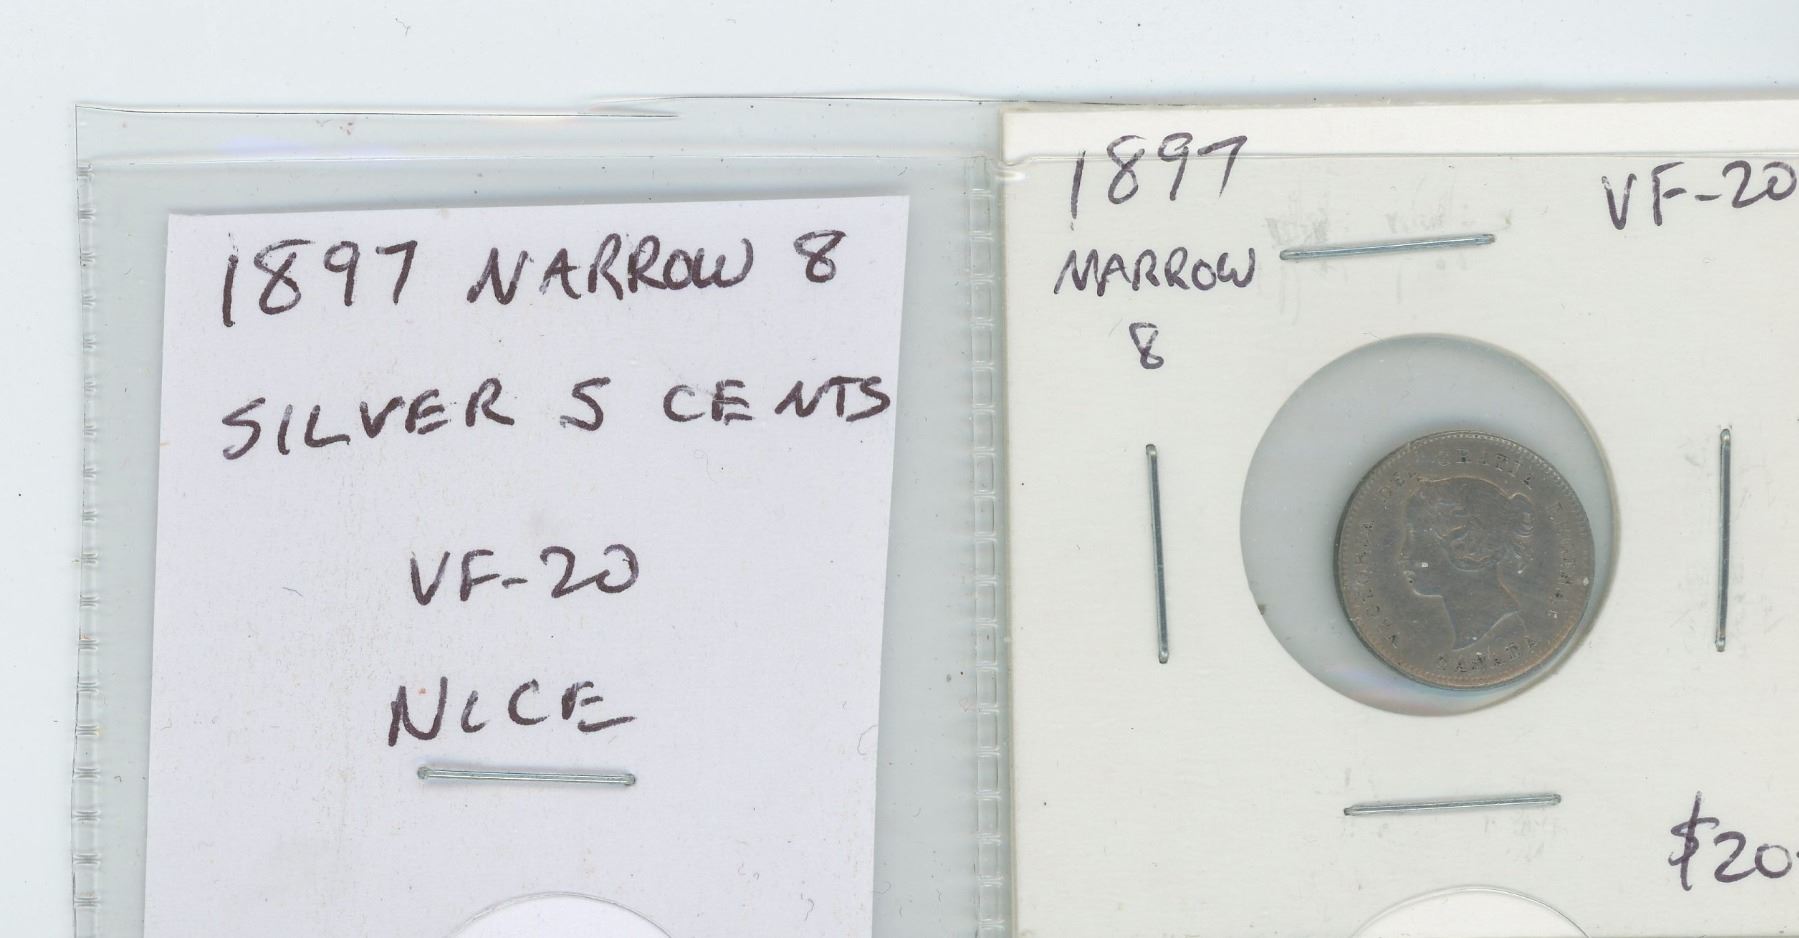 1897 NARROW 8
SILVER 5 CENTS
VF-20
NICE
1897
NARROW
8
VF-20
VICTORIA DEI GRATIA REGINA
CANADA
$20